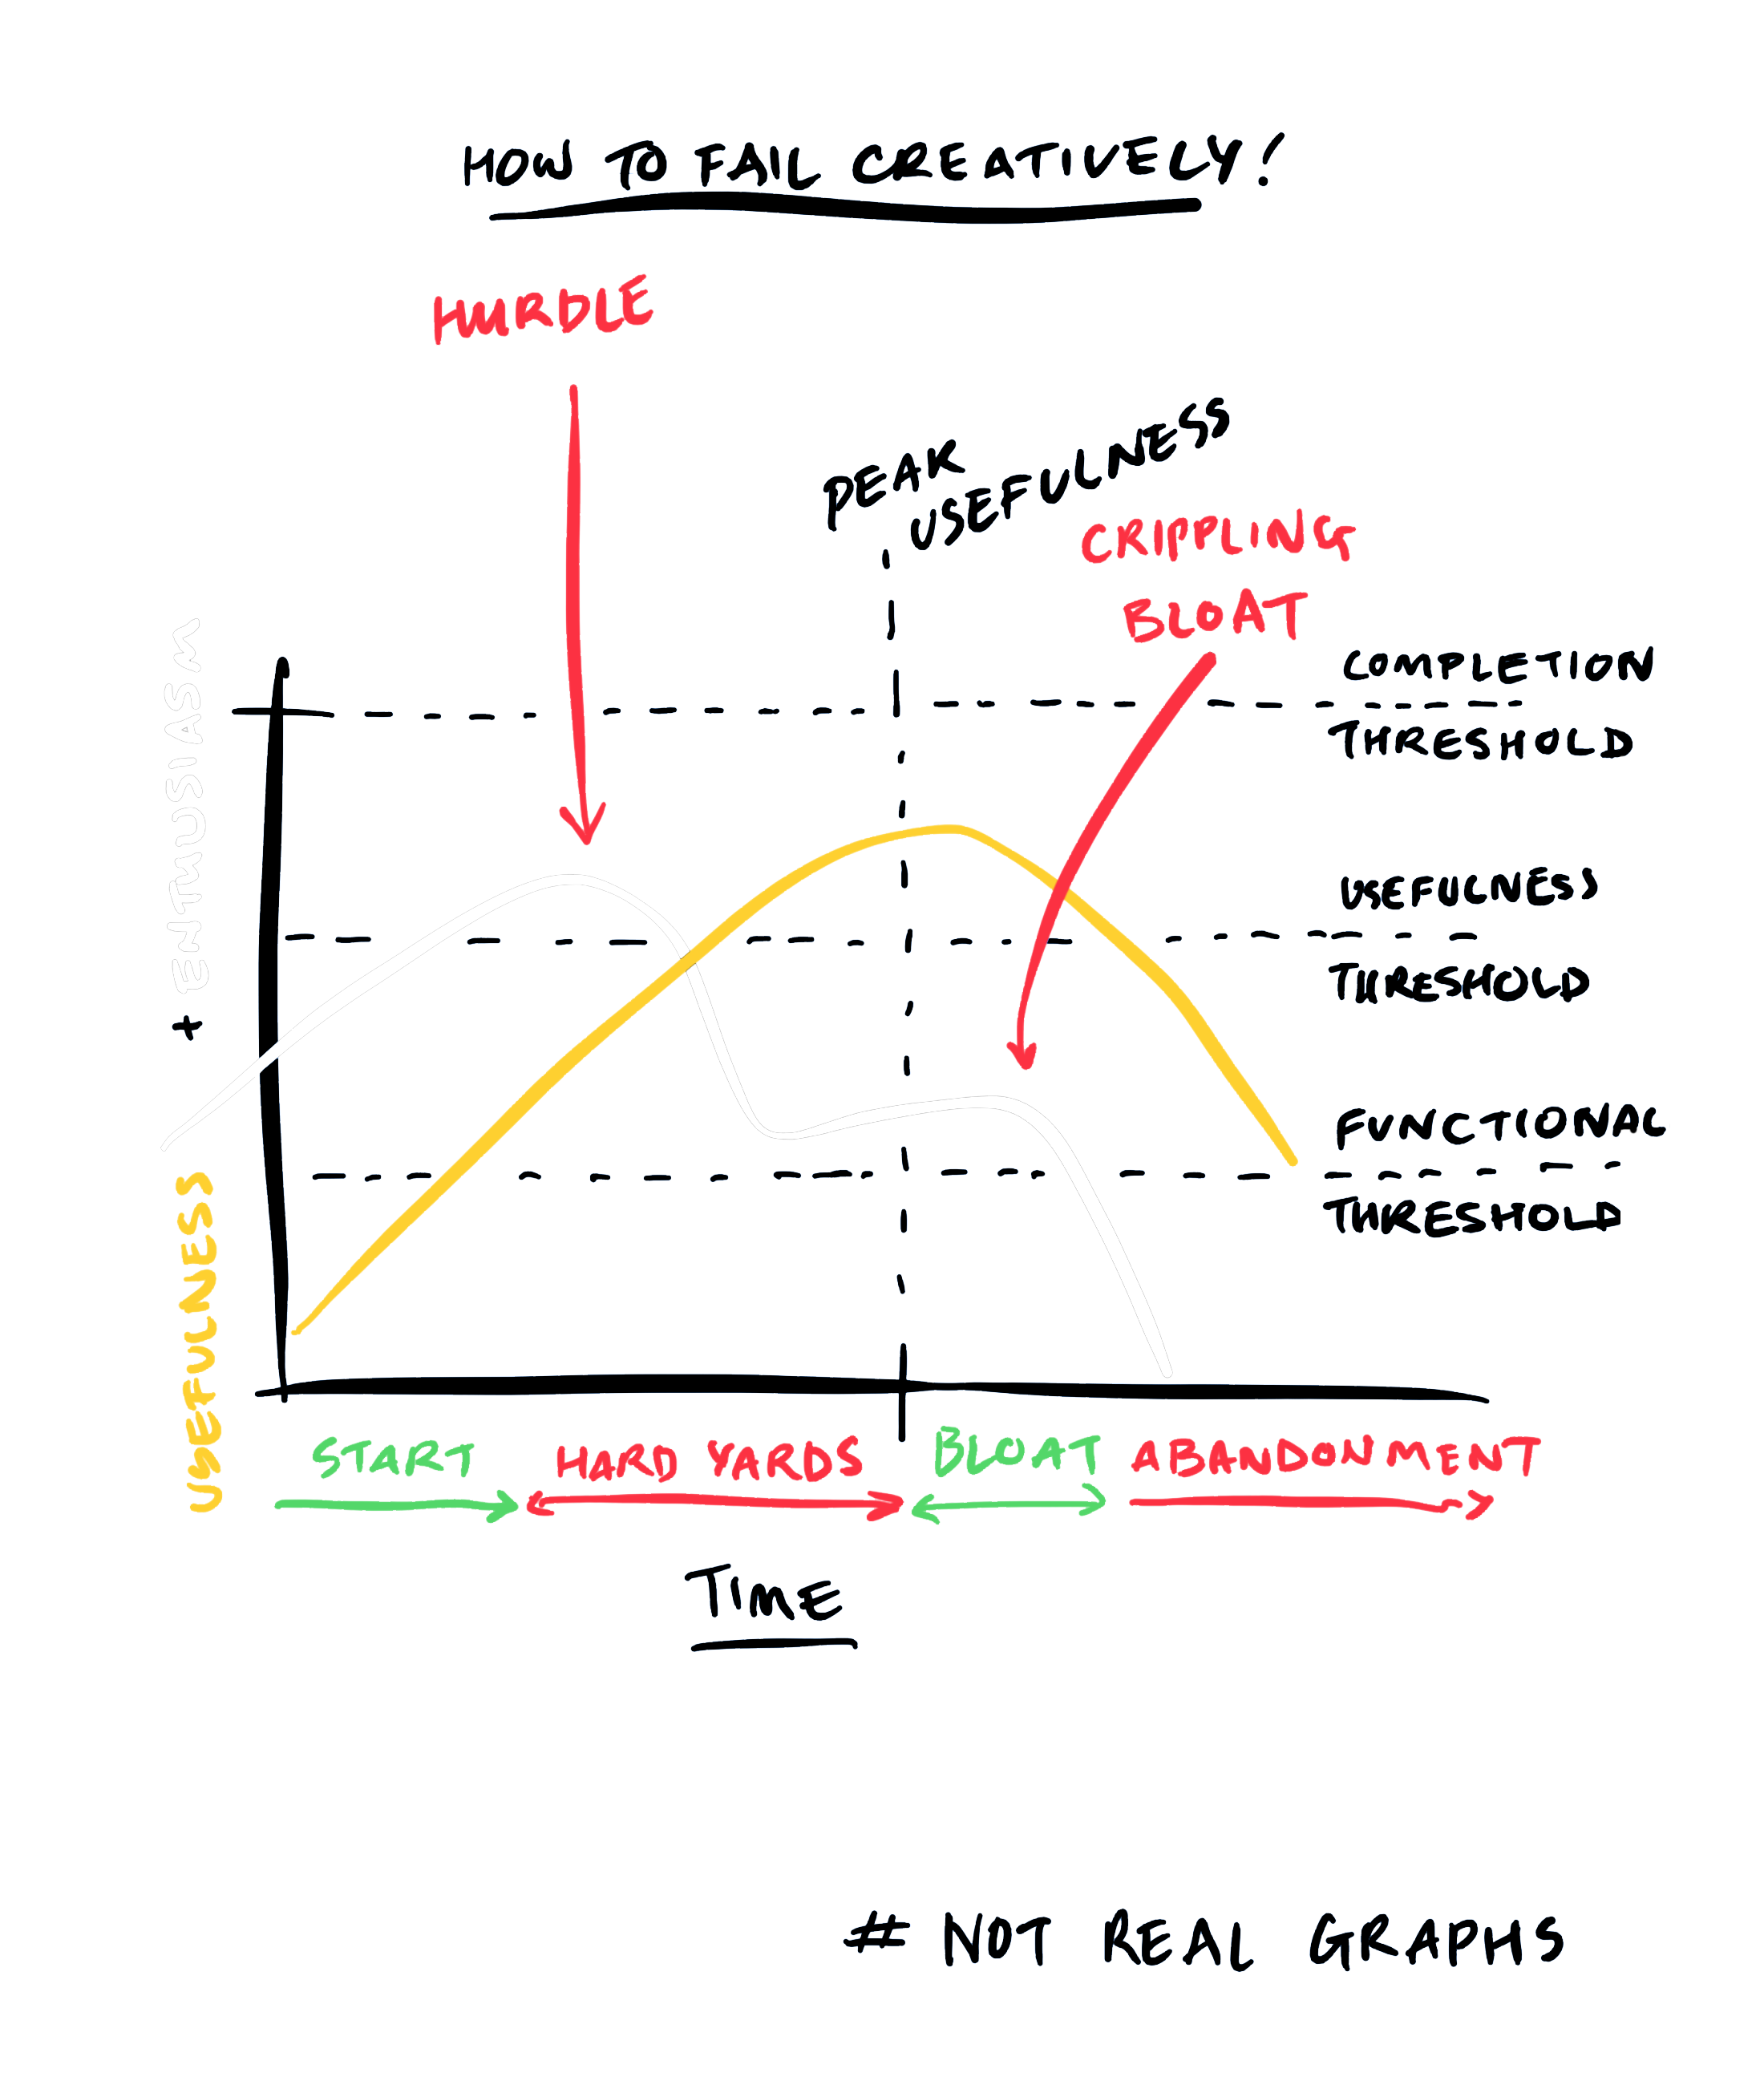 HOW TO FAIL CREATIVELY!
HURDLE
PEAK
USEFULNESS
CRIPPLING
BLOAT
COMPLETION
THRESHOLD
USEFULNESS
THRESHOLD
FUNCTIONAL
THRESHOLD
USEFULNESS + ENTHUSIASM
START HARD YARDS BLOAT ABANDONMENT
TIME
# NOT REAL GRAPHS